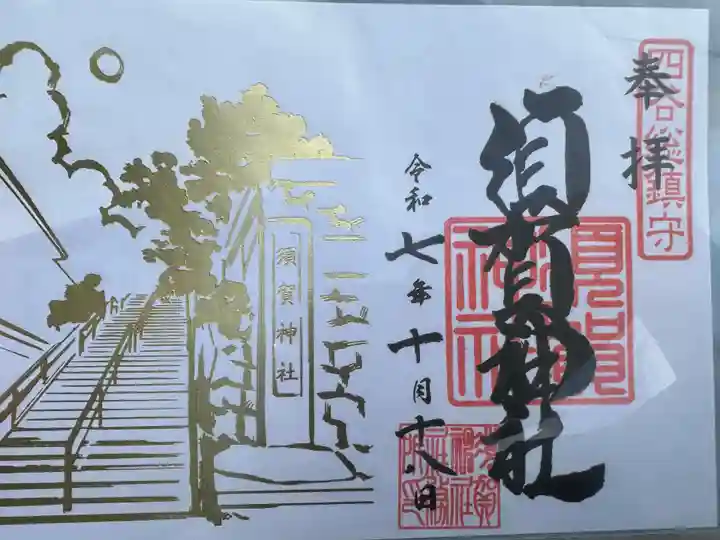 奉拝
四谷総鎮守
須賀神社
須賀神社
令和七年十月十八日
須賀神社